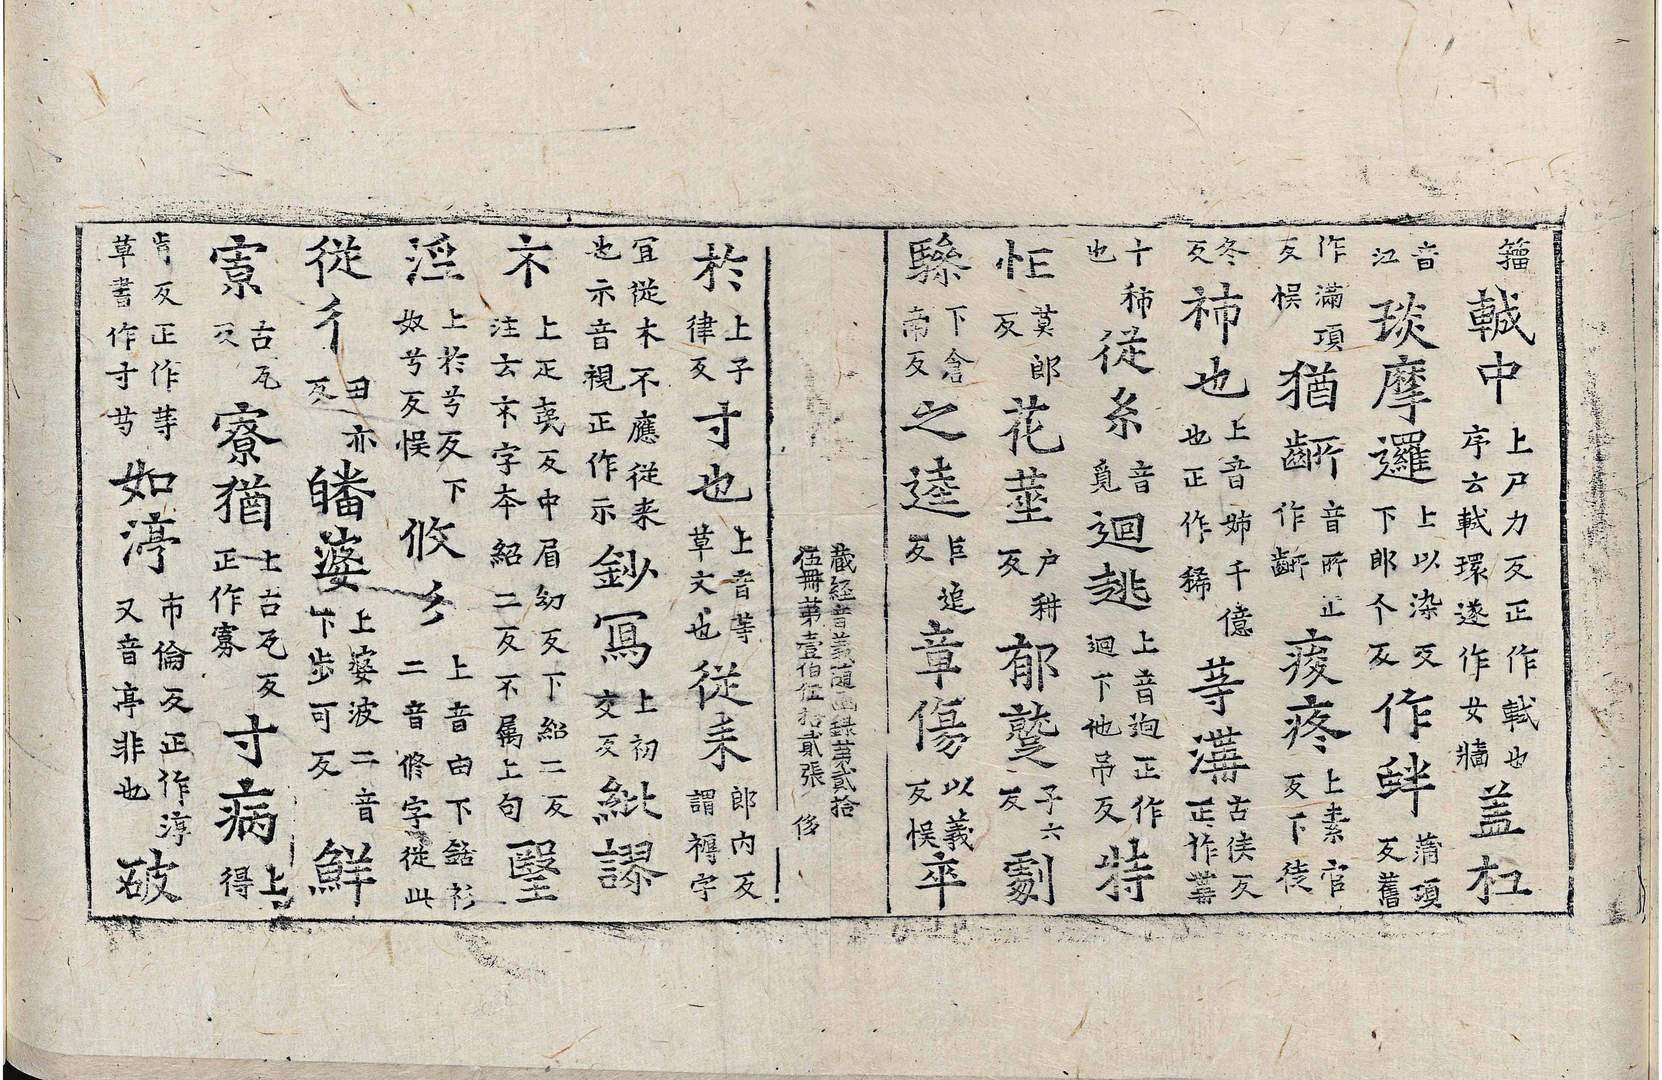 籀軾中上尸力反正作軾也序云軾環遂作女牆蓋杠
音江琰摩邏上以染反下郎个反作蚌蒲項反舊
作滿項反悮猶齭音所正作齭痠疼上素官反下徒
冬反柹也上音姊千億也正作稀䓁溝古侯反正作冓
十柹也從糸音覓迴趒上音迿正作迴下他吊反特
㤀莫郎反花莖戶耕反郁蹵子六反劇
驂下倉南反之逵巨追反章傷以義反悮卒
藏経音義随凾録苐貳拾
伍冊苐壹伯伍拾貳張 侈
扵上子律反寸也上音䓁草文也從耒郎内反謂禣字
冝從木不應従来也示音視正作示鈔寫上初交反紕謬
𣎴上疋㐮反中眉㓜反下紹二反注云𣎴字夲紹二反不属上句毉
滛上扵兮反下奴兮反悮攸彡上音由下銛衫二音修字從此
從彳丑亦反皤婆上婆波二音下步可反鮮
寡古瓦反寮猶上古瓦反正作寡寸病上得
肯反正作䓁草書作寸䒑如渟市倫反正作淳又音亭非也破